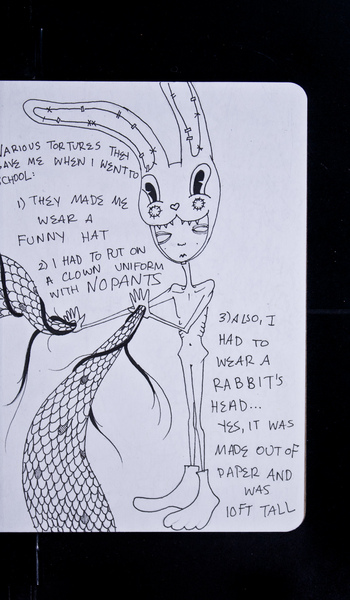 VARIOUS TORTURES THEY
GAVE ME WHEN I WENT TO
SCHOOL:
1) THEY MADE ME
WEAR A
FUNNY HAT
2) I HAD TO PUT ON
A CLOWN UNIFORM
WITH NO PANTS
3) ALSO, I
HAD TO
WEAR A
RABBIT'S
HEAD...
YES, IT WAS
MADE OUT OF
PAPER AND
WAS
10FT TALL